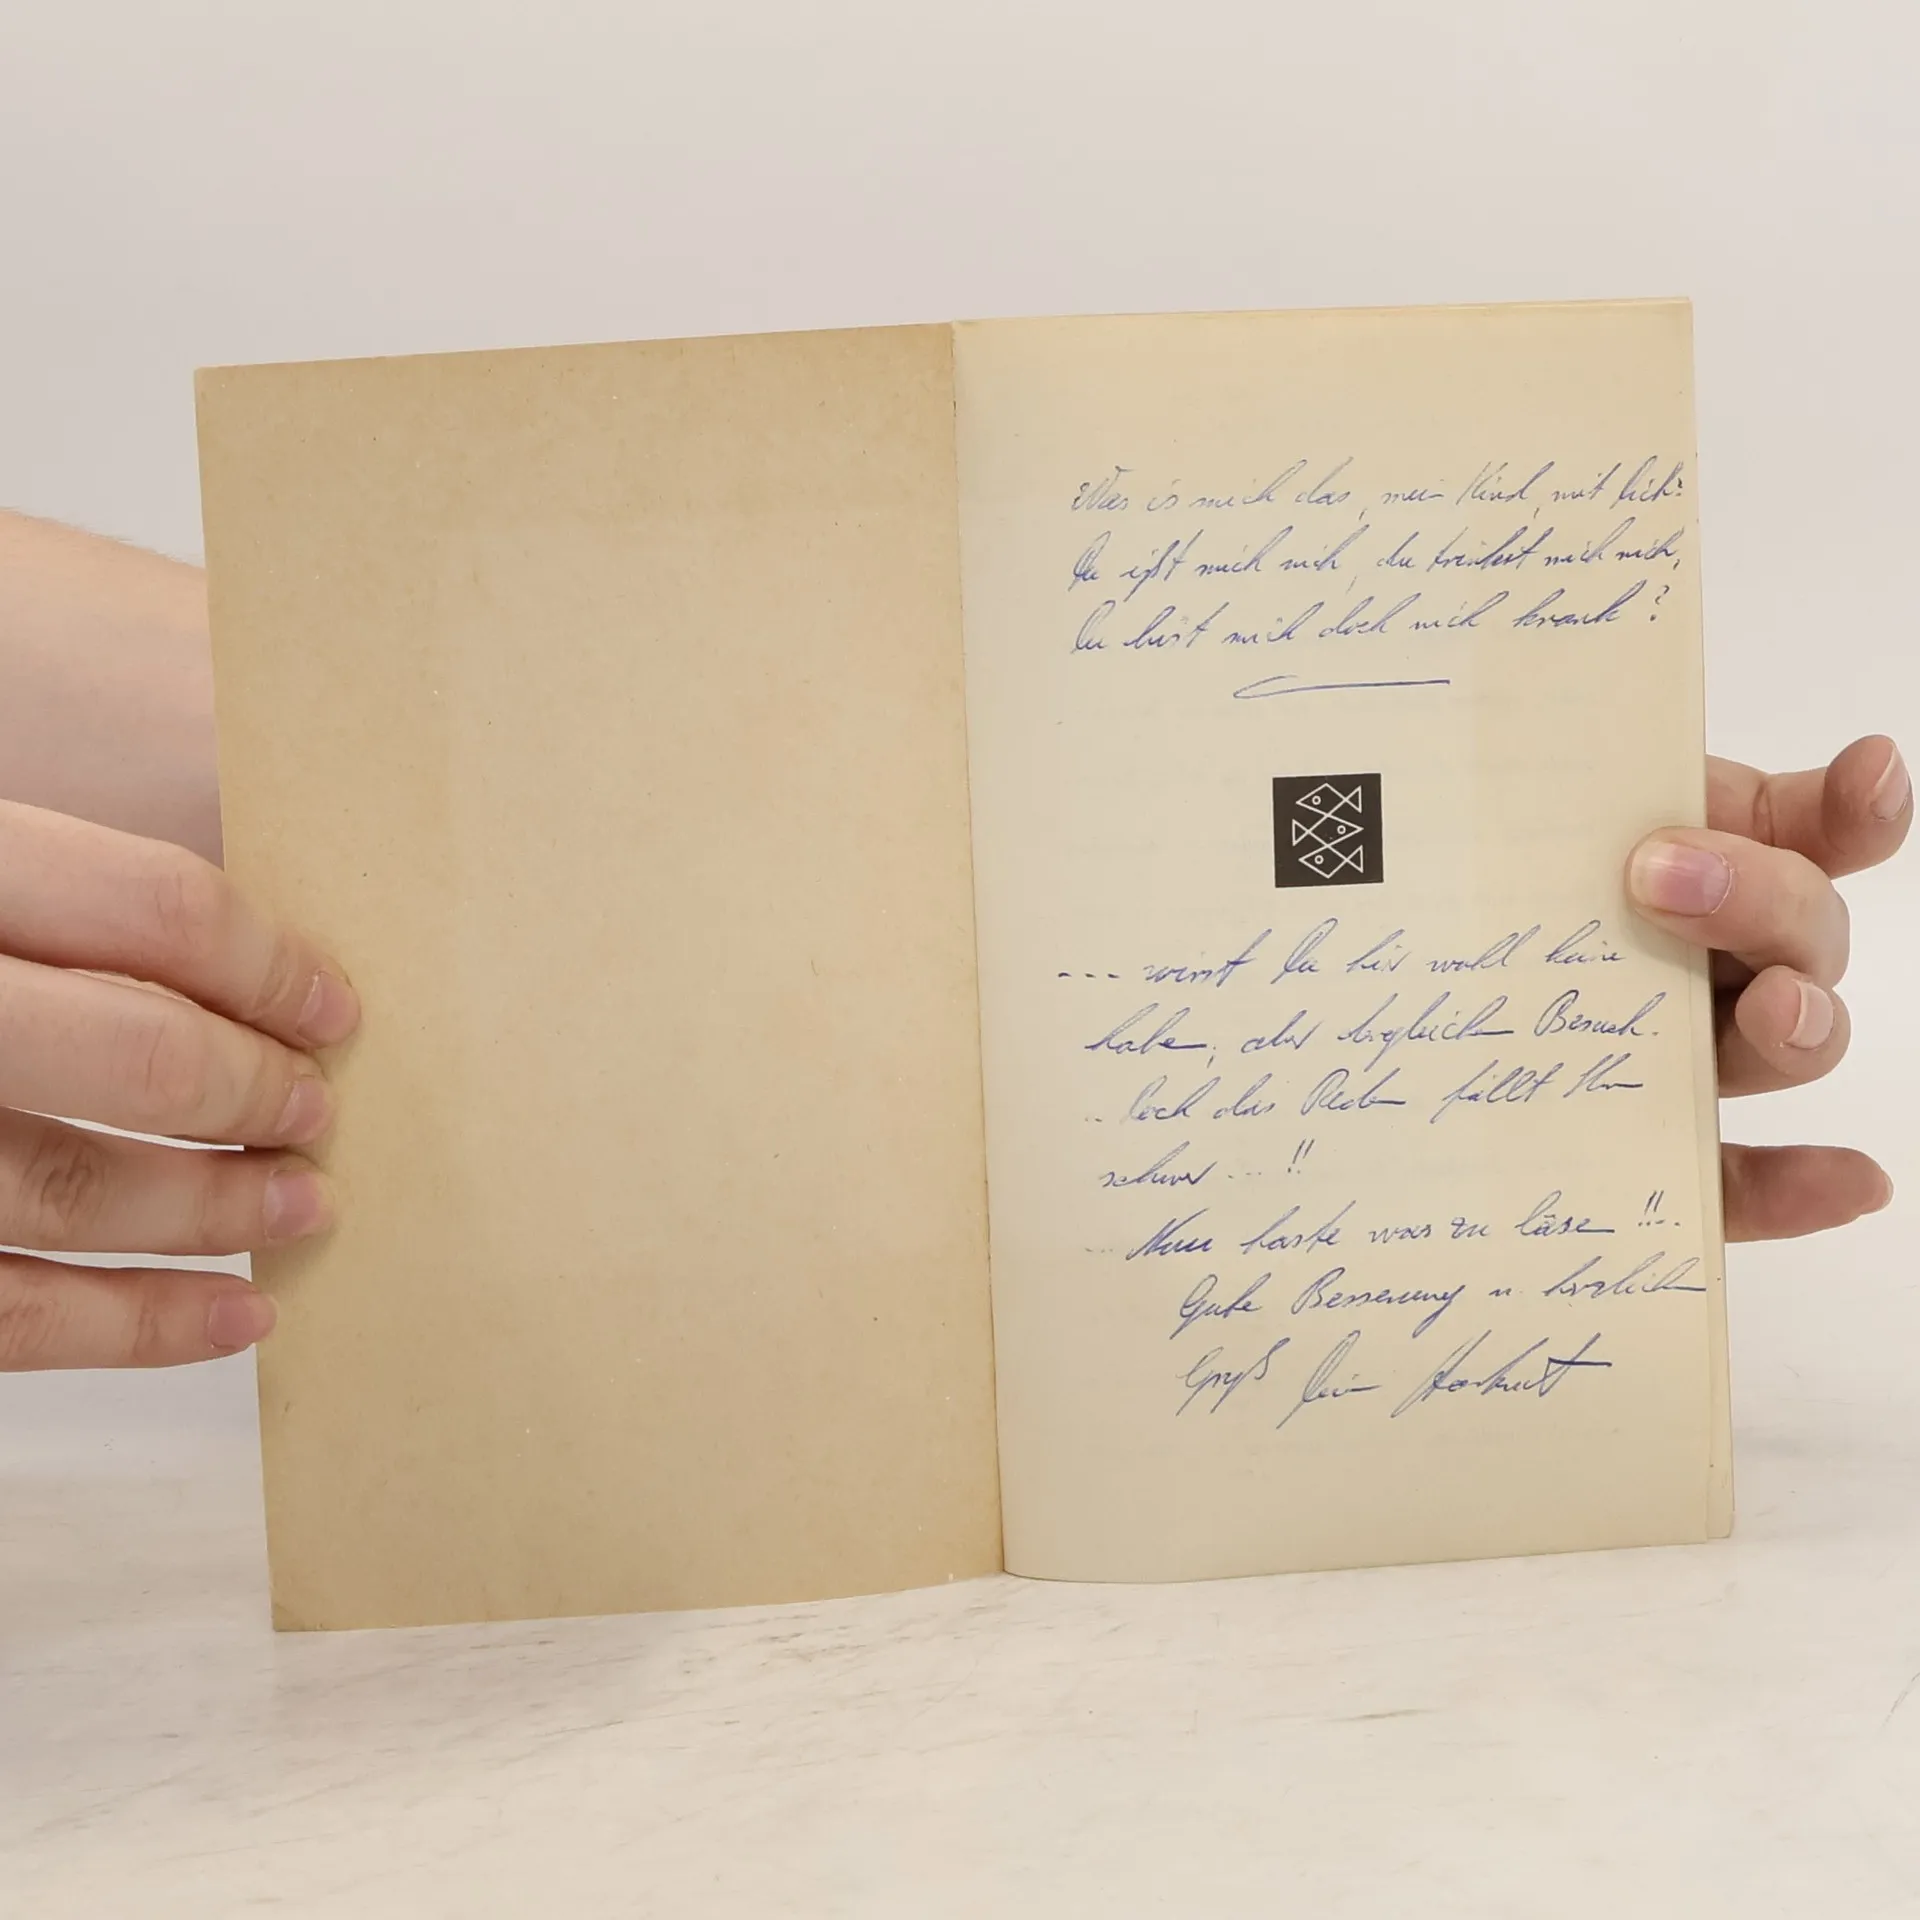 Was is mich das, mein Kind, mit Dich?
Du ißt mich nich, du trinkst mich nich,
Du bist mich doch nich krank?
--- wirst Du hier wohl keine
haben, aber Besuch.
.. Doch das Reden fällt Ihm
schwer ... !!
... Nun haste was zu läsen !!...
Gute Besserung u. herzlichen
Gruß Dein